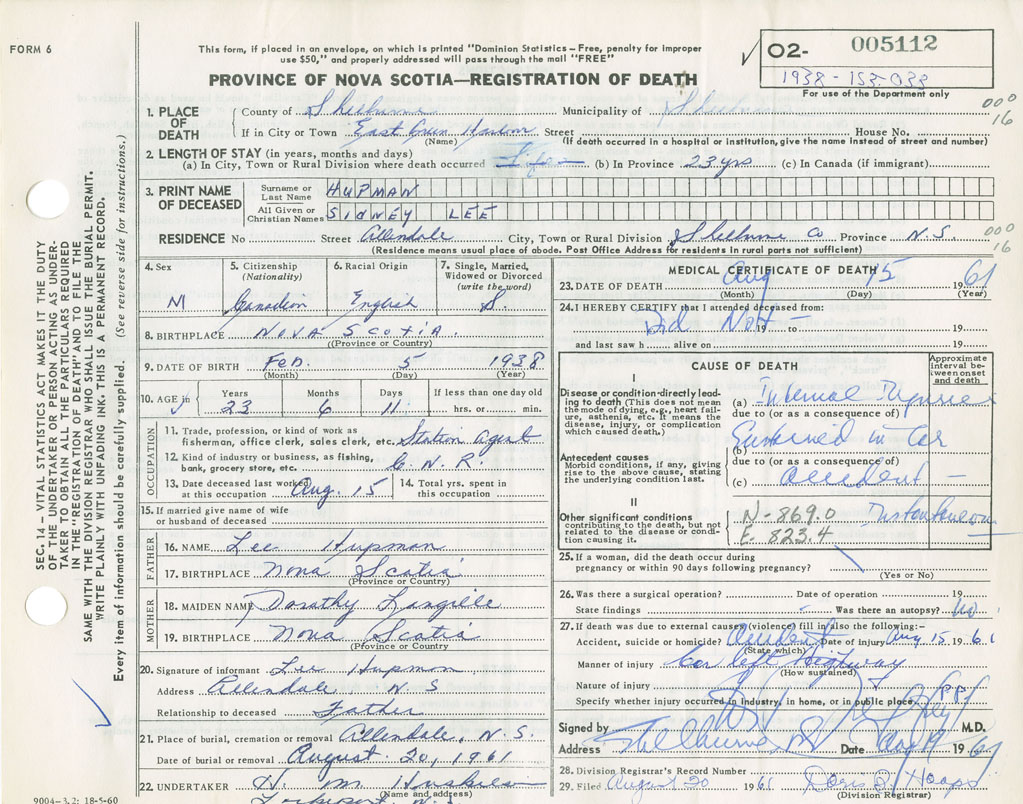 FORM 6
This form, if placed in an envelope, on which is printed "Dominion Statistics – Free, penalty for improper
use $50," and properly addressed will pass through the mail "FREE"
PROVINCE OF NOVA SCOTIA—REGISTRATION OF DEATH
O2- 005112
1938-155-038
For use of the Department only
000
16
1. PLACE OF DEATH
County of Shelburne Municipality of Shelburne
If in City or Town East Green Harbour Street House No.
(Name) (If death occurred in a hospital or institution, give the name instead of street and number)
2. LENGTH OF STAY (in years, months and days)
(a) In City, Town or Rural Division where death occurred Life (b) In Province 23 yrs (c) In Canada (if immigrant)
3. PRINT NAME OF DECEASED
Surname or Last Name HUPMAN
All Given or Christian Names SIDNEY LEE
RESIDENCE No Street Allendale City, Town or Rural Division Shelburne Co Province N.S.
000
16
(Residence means usual place of abode. Post Office Address for residents in rural parts not sufficient)
4. Sex M
5. Citizenship (Nationality) Canadian
6. Racial Origin English
7. Single, Married, Widowed or Divorced (write the word) S.
8. BIRTHPLACE NOVA SCOTIA
(Province or Country)
9. DATE OF BIRTH Feb. 5 1938
(Month) (Day) (Year)
10. AGE in Years 23 Months 6 Days 11 If less than one day old hrs. or min.
OCCUPATION
11. Trade, profession, or kind of work as
fisherman, office clerk, sales clerk, etc. Station agent
12. Kind of industry or business, as fishing,
bank, grocery store, etc. C.N.R.
13. Date deceased last worked
at this occupation Aug. 15
14. Total yrs. spent in
this occupation
15. If married give name of wife
or husband of deceased
FATHER
16. NAME Lee Hupman
17. BIRTHPLACE Nova Scotia
(Province or Country)
MOTHER
18. MAIDEN NAME Dorothy Langille
19. BIRTHPLACE Nova Scotia
(Province or Country
20. Signature of informant Lee Hupman
Address Allendale N S
Relationship to deceased Father
21. Place of burial, cremation or removal Allendale, N.S.
Date of burial or removal August 20, 1961
22. UNDERTAKER H. M. Huskins
(Name and address)
Lockeport N.S.
9004-3.2: 18-5-60
MEDICAL CERTIFICATE OF DEATH
23. DATE OF DEATH Aug 15 1961
(Month) (Day) (Year)
24. I HEREBY CERTIFY that I attended deceased from:
Did Not 19 to 19
and last saw h alive on 19
CAUSE OF DEATH
Approximate interval between onset and death
I
Disease or condition directly leading to death (This does not mean the mode of dying, e.g., heart failure, asthenia, etc. It means the disease, injury, or complication which caused death.)
(a) Internal Injuries
due to (or as a consequence of)
Antecedent causes
Morbid conditions, if any, giving rise to the above cause, stating the underlying condition last.
(b) Sustained in Car
due to (or as a consequence of)
(c) accident
II
Other significant conditions
contributing to the death, but not related to the disease or condition causing it.
N-869.0 Instantaneous
E. 823.4
25. If a woman, did the death occur during
pregnancy or within 90 days following pregnancy?
(Yes or No)
26. Was there a surgical operation? Date of operation 19
State findings Was there an autopsy? No
27. If death was due to external causes (violence) fill in also the following:-
Accident, suicide or homicide? Accident Date of injury Aug 15 1961
(State which)
Manner of injury Car left Highway
(How sustained)
Nature of injury
Specify whether injury occurred in industry, in home, or in public place
Signed by M.D.
Address Shelburne NS Date Aug 19 1961
28. Division Registrar's Record Number
29. Filed August 20 1961
(Division Registrar)
SEC. 14 – VITAL STATISTICS ACT MAKES IT THE DUTY
OF THE UNDERTAKER OR PERSON ACTING AS UNDER-
TAKER TO OBTAIN ALL THE PARTICULARS REQUIRED
IN THE "REGISTRATION OF DEATH" AND TO FILE THE
SAME WITH THE DIVISION REGISTRAR WHO SHALL ISSUE THE BURIAL PERMIT.
WRITE PLAINLY WITH UNFADING INK. THIS IS A PERMANENT RECORD.
Every item of information should be carefully supplied. (See reverse side for instructions.)